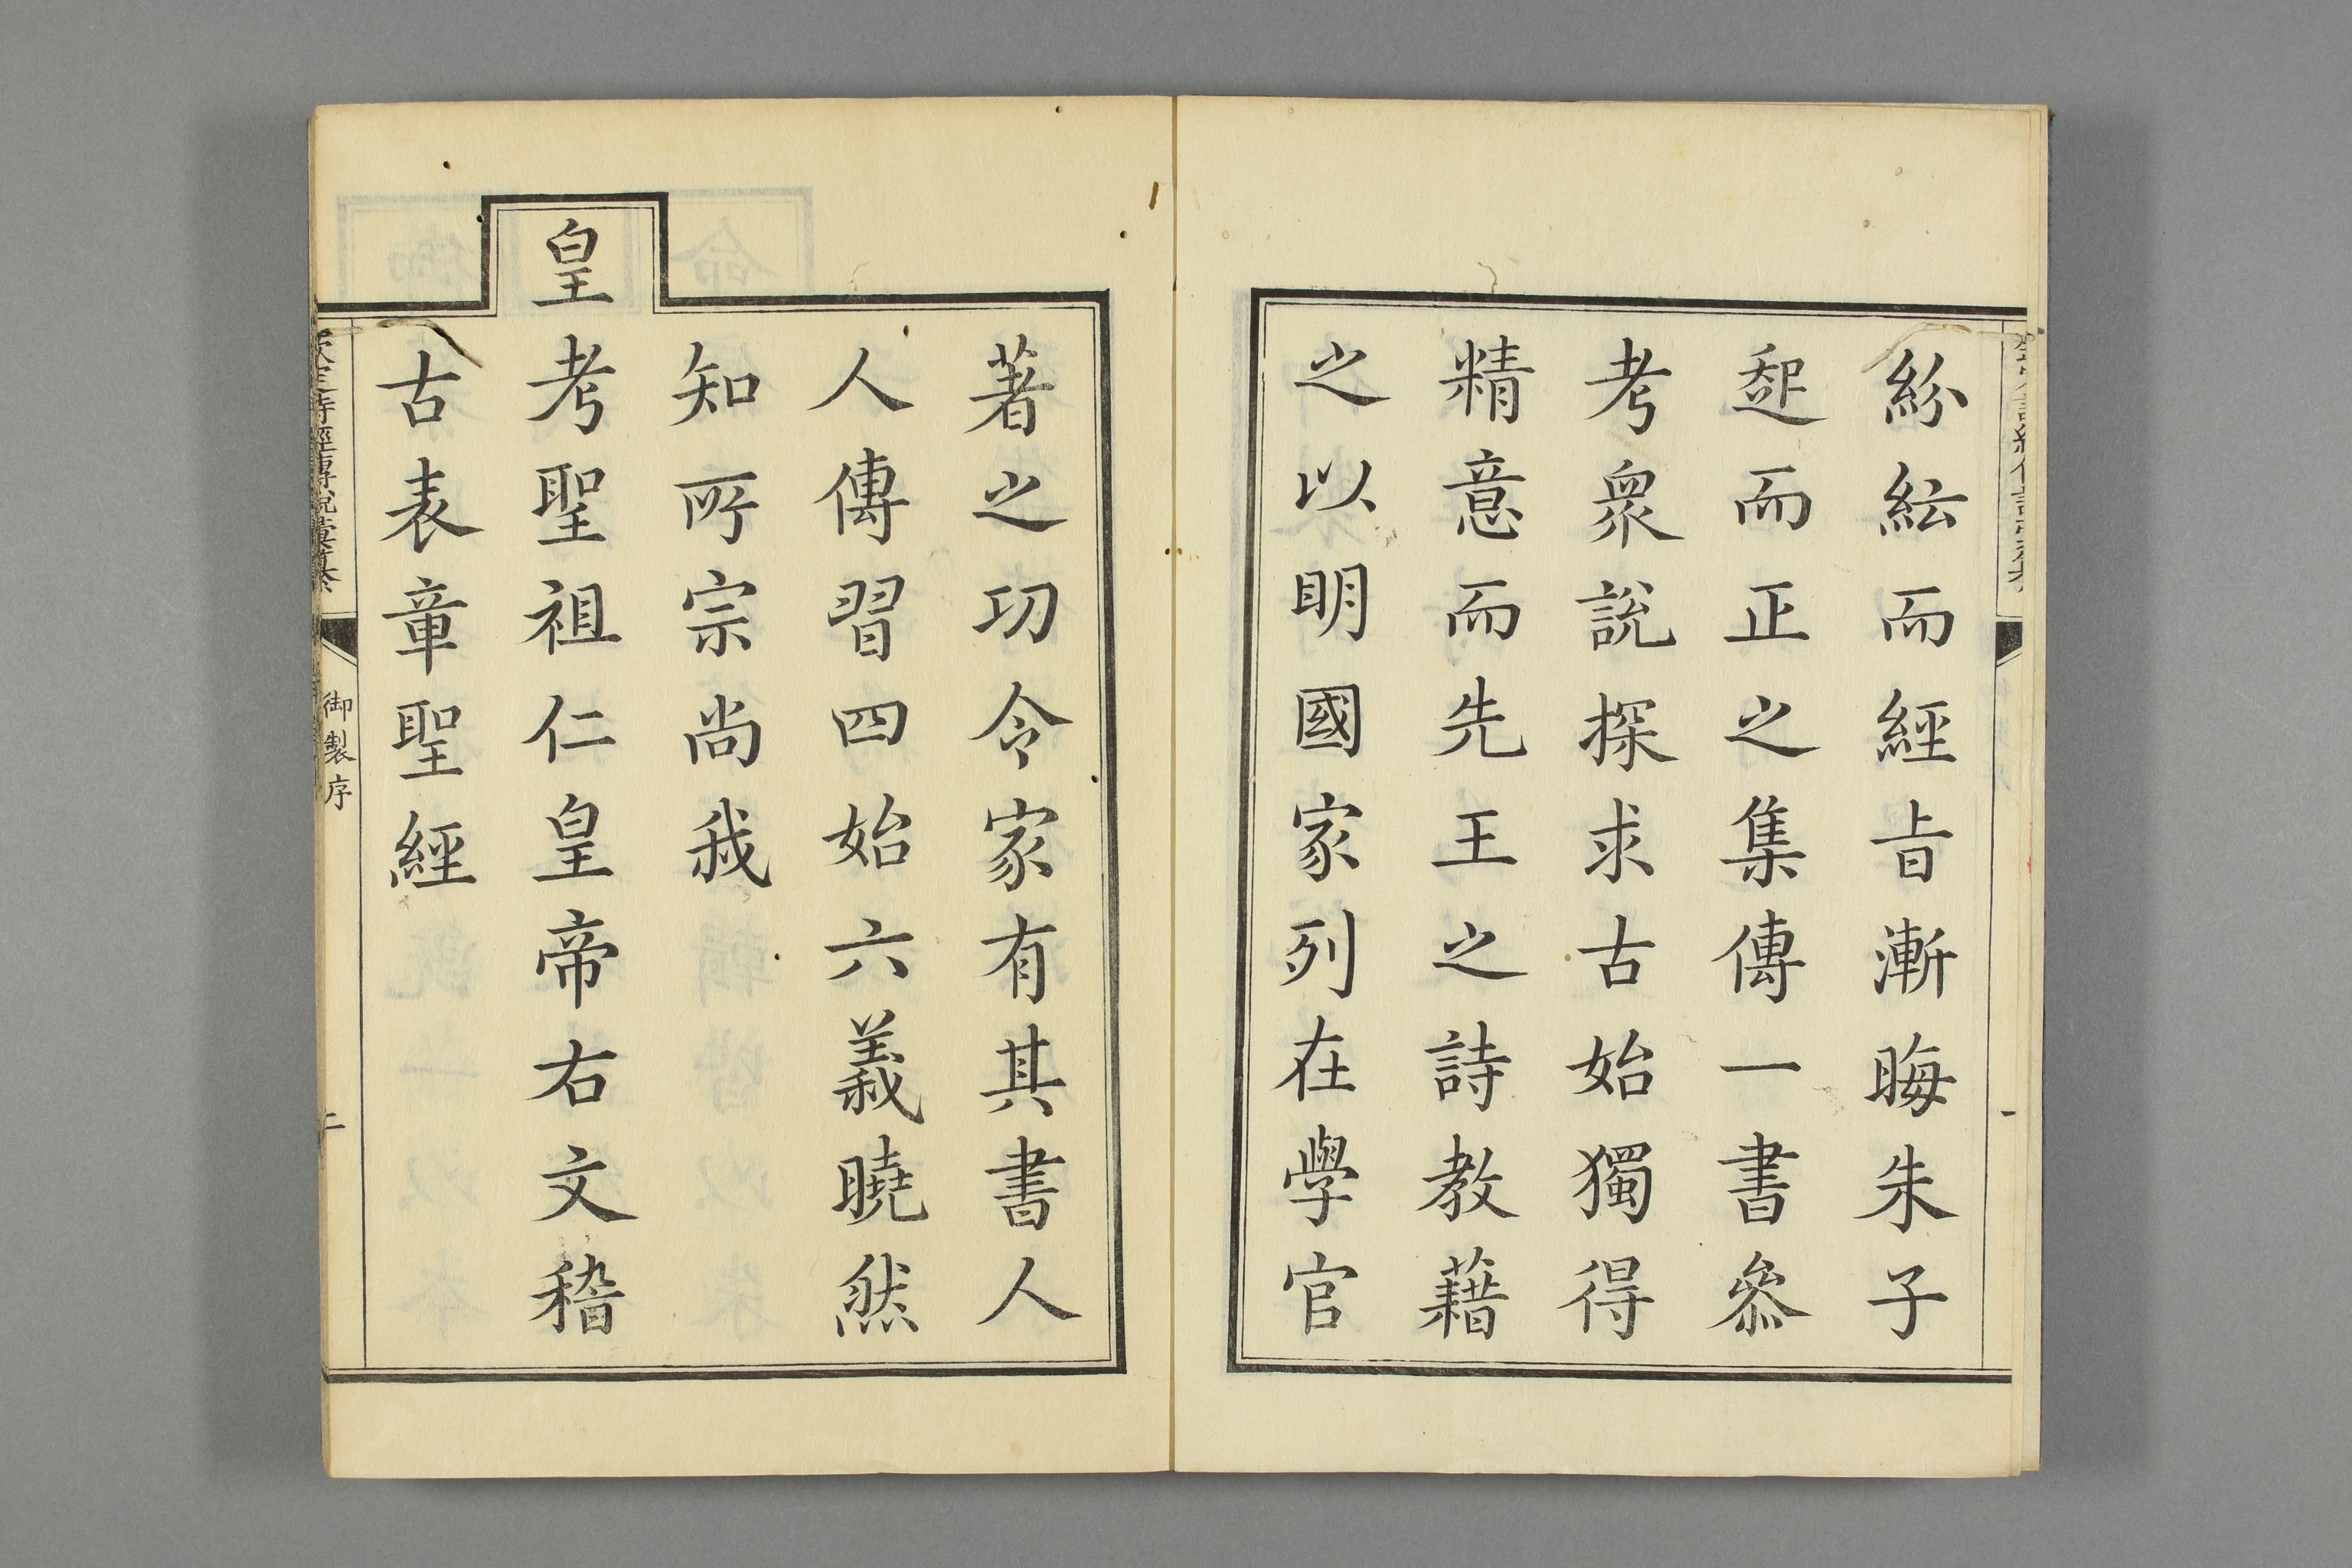 紛紜而經旨漸晦朱子
起而正之集傳一書參
考衆說探求古始獨得
精意而先王之詩教藉
之以明國家列在學官
著之功令家有其書人
人傳習四始六義曉然
知所宗尚我
皇考聖祖仁皇帝右文稽
古表章聖經
欽定詩經傳說彙纂
御製序
二
一